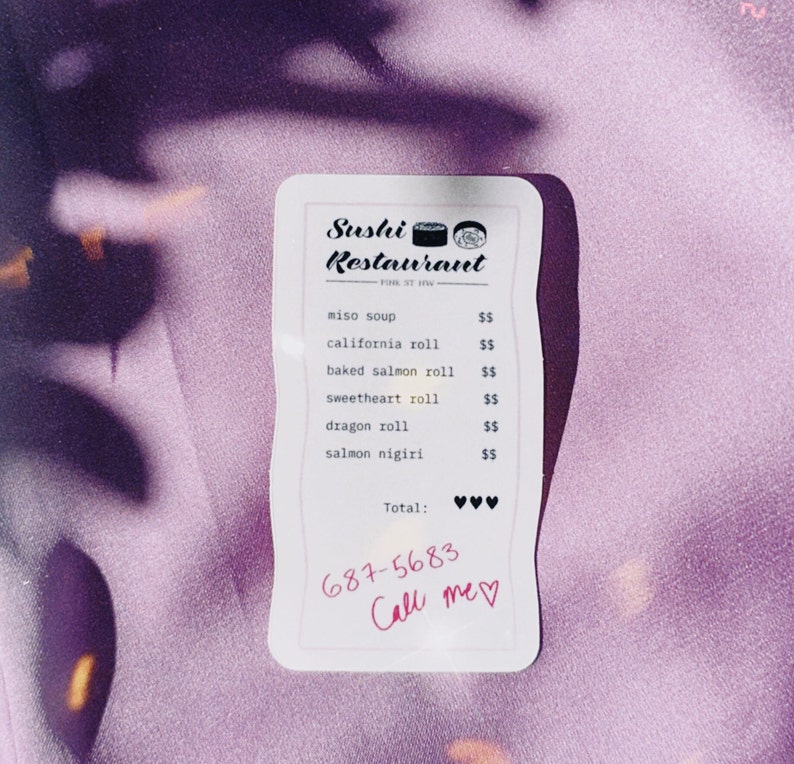 Sushi
Restaurant
PINK ST HW
miso soup $$
california roll $$
baked salmon roll $$
sweetheart roll $$
dragon roll $$
salmon nigiri $$
Total: ♥♥♥
687-5683
Call me♡